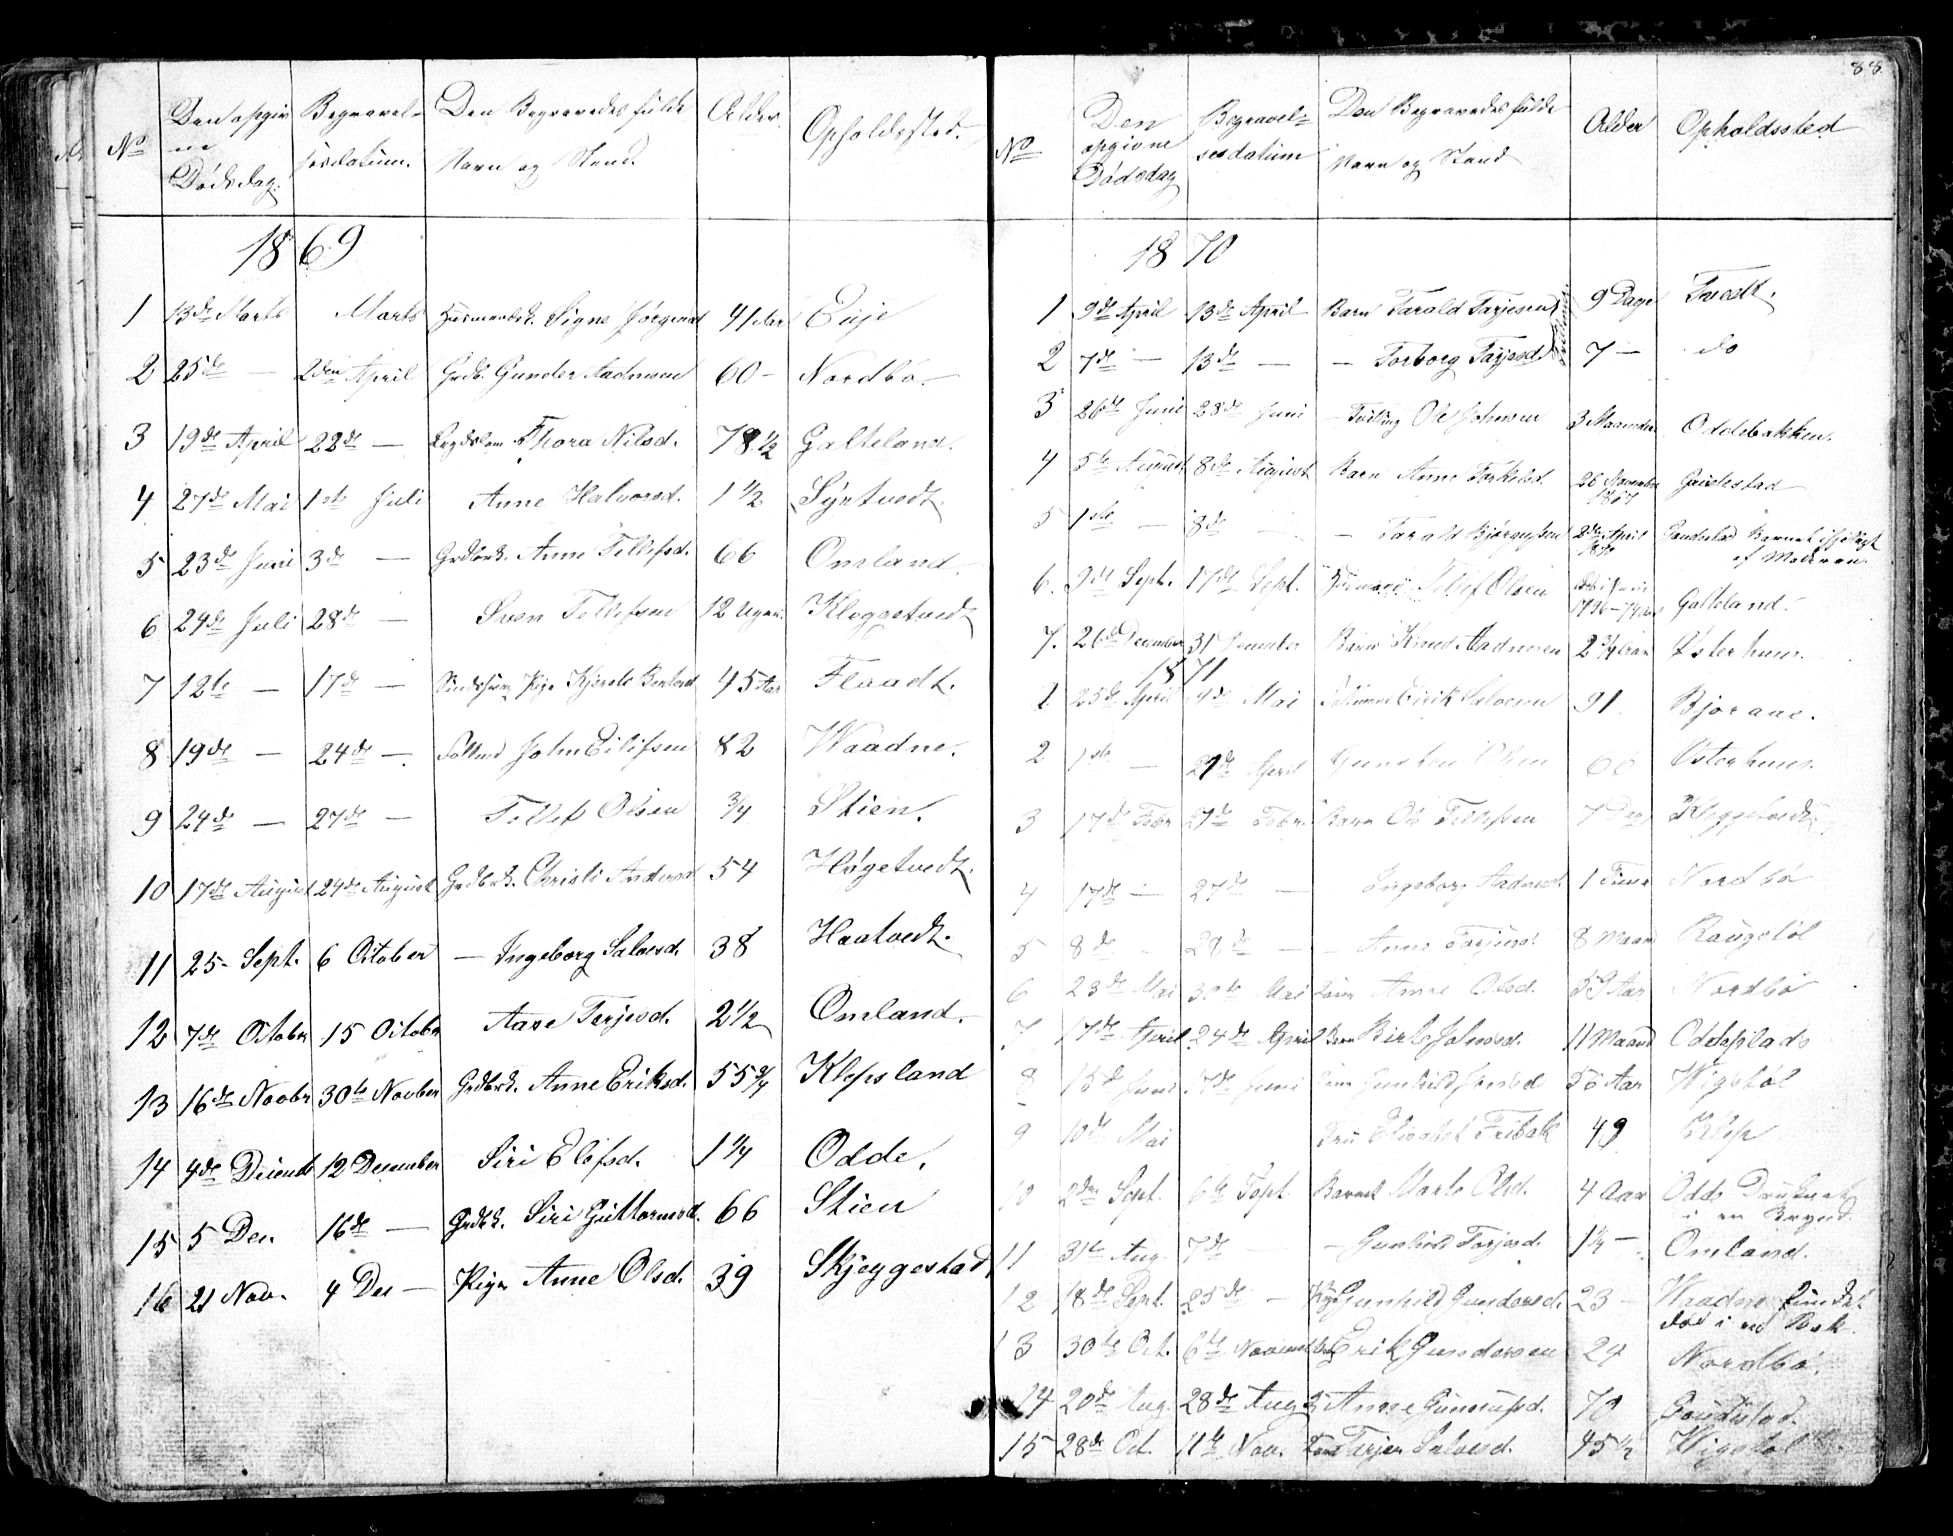 No Den opgivne Dødsdag. Begravelsesdatum. Den Begravedes fulde Navn og Stand. Alder. Opholdssted.
1869
1 13de Marts Marts Signe Jørgensd 41 Aar Euje
2 25de — 2den April Grdb. Gunder Aadnesen 60 — Nordbø —
3 19de April 22de — Lægdslem Thora Nilsd. 78 1/2 Galteland.
4 27de Mai 1ste Juli Anne Halvorsd. 1 1/2 Syrtvedt
5 23de Juni 3de — Grdbrk. Anne Tellefsd. 66 Omland.
6 24de Juli 28de — Sven Tellefsen 12 Uger. Kleggetvedt
7 12te — 17de — Pige 45 Aar Flaadt.
8 19de — 24de — John Eilifsen 82 Waadne.
9 24de — 27de — Tellef Olsen 3/4 Stien.
10 17de August 24de August Grdbrk. Christi Andersd 54 Høgetvedt.
11 25 Sept. 6 October — Ingeborg Salvesd. 38 Haatvedt.
12 7de October 15 October Aase Terjesd. 2 1/2 Omland.
13 16de Novbr 30te Novber Grdbrk. Anne Eriksd. 55 3/4 Klepsland
14 4de December 12 December Siri Elefsd. 1 1/4 Odde.
15 5 Dec. 16de — Grdbk. Siri Guttormsd. 66 Stien
16 21 Nov. 4 Dec — Pige Anne Olsd. 39 Skjeggestad
88
No Den opgivne Dødsdag Begravelsesdatum Den Begravedes fulde Navn og Stand Alder Opholdssted
1870
1 9de April 13de April Barn Tarald Tarjesen 9 Dage Tvedt.
2 7de — 13de — — Torborg Tarjesd. 7 — do
3 26de Juni 28de Juni — Tvilling Ole Johnsen 3 Maaneder Oddebakken.
4 5te August 8de August Barn Anne Torkelsd. 26 November 1867
5 1ste — 8de — — Tarald 2de April 1870 Barnet ihjellagt af Moderen
6. 9de Sept. 17de Sept. Tellef Olsen 1796 — 74 Aar Galteland.
7. 26de December 31 December Barn Knud Aadnesen 2 3/4 Aar Østerhuus.
1871
1 25de April 4de Mai Eirik Salvesen 91 Bjoraae.
2 1ste — 27de April Olsen 66 Østerhuus.
3 17de Febr 27de Febr. Barn Ole Tellefsen 7 Dage Kleggetvedt
4 17de — 27de — Ingeborg Aadnesd. 1 Time Nordbø
5 8de — 28de — Anne Tarjesd. 8 Maan Raugstøl
6 23de Mai 30te Mai Anne Olsd. 59 Aar Nordbø
7 17de April 24de April Barn Birte Johnsd. 11 Maan Oddeplads
8 15de Juni Juni Gunhild 56 Aar Wigstøl
9 10de Mai Fru Elisabet Fribak 49 Klep
10 2den Sept. 6te Sept Marte Olsd. 4 Aar Odde Druknet
i en Brynd.
11 31te Aug. 7de — — Gunhild Tarjesd. 1 1/4 — Omland.
12 18de Sept. 25de — Gunhild Gundersd. 23 — Waadne fundet
død i en Bæk.
13 30te Oct. 6te Novem Erik Gundersen 24 Nordbø.
14 20de Aug. 28de Aug Anne Gunnufsd. 70
15 28de Oct. 11te Nov. Terjer Salvesd. 45 1/2 Wigstøl